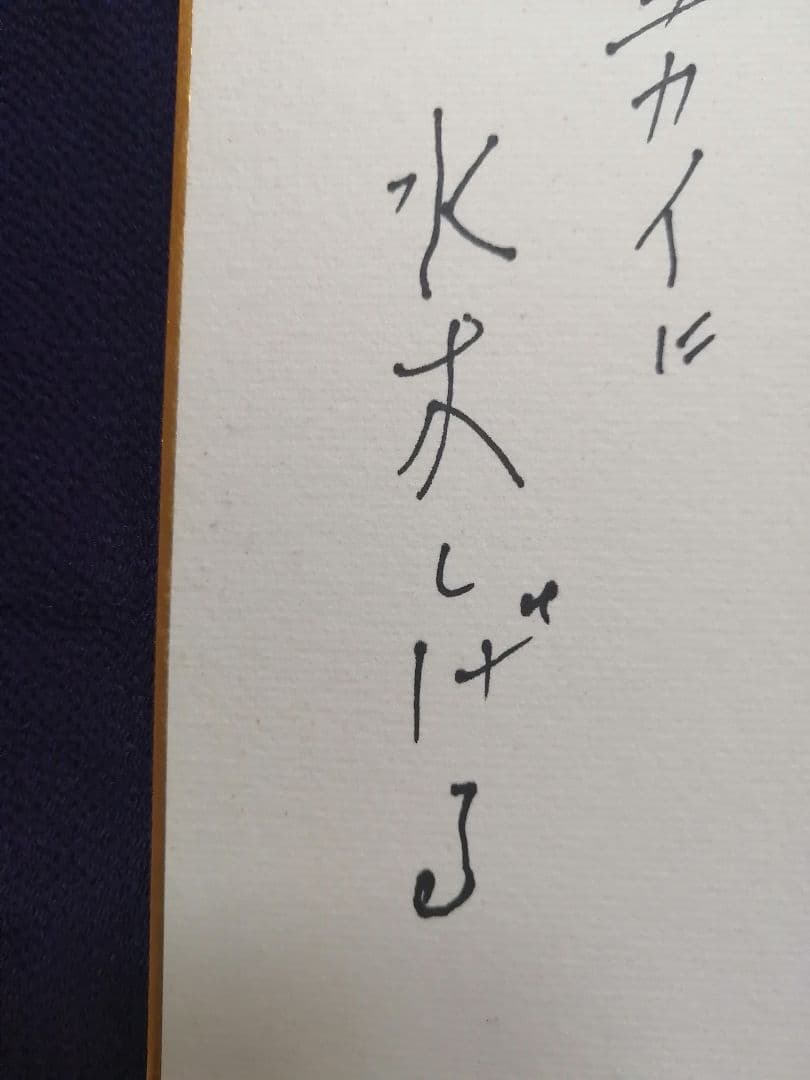 カイに
水木しげる